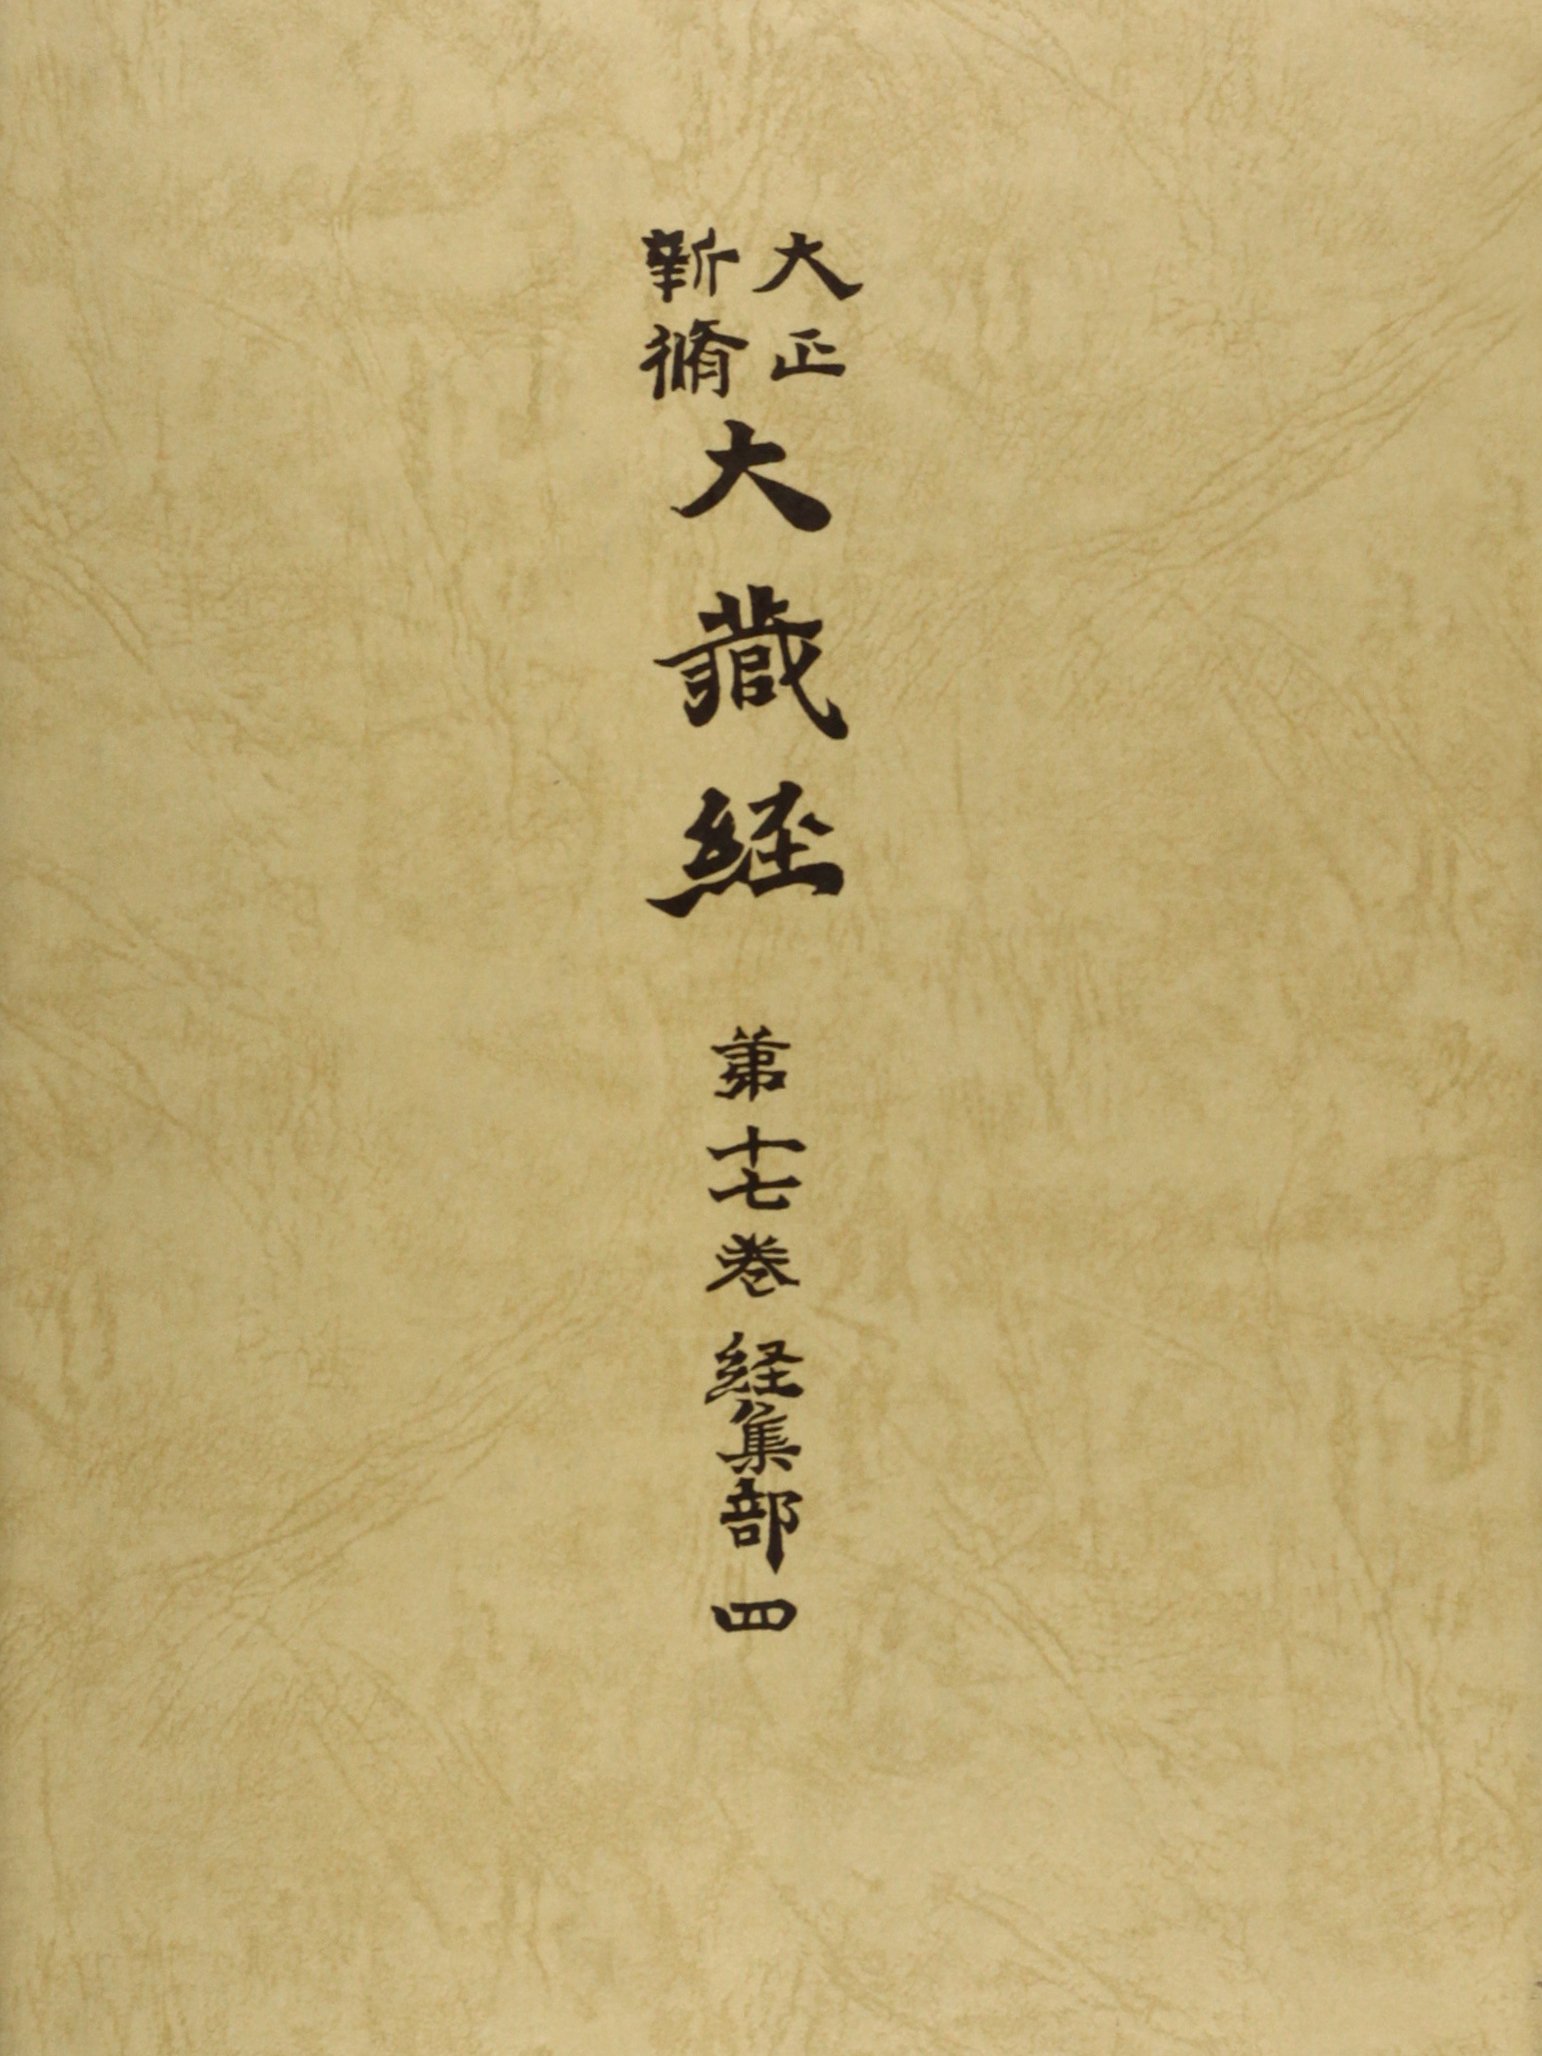 大正
新脩
大藏経
第十七巻
経集部四